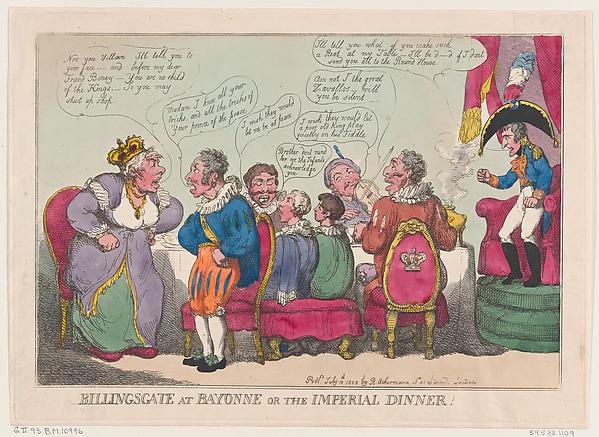 Now you Villain I'll tell you to
your face — and before my dear
Friend Boney — You are no child
of the Kings — So you may
shut up shop.
Madam I know all your
tricks and all the tricks of
your prince of the peace
I wish they would
let me be at peace
Brother dont mind
her we the Infants
acknowledge
you
I wish they would let
a poor old King Play
quietly on his Fiddle
Am not I the great
Zavallos — will
you be silent
I'll tell you what if you make such
a Riot at my Table — I'll be d—d if I dont
send you all to the Round House
Pubd. July 10th 1808 by R. Ackermann N 101 Strand London
BILLINGSGATE AT BAYONNE OR THE IMPERIAL DINNER!
G.II.93 B.M.10996
59.533.1109